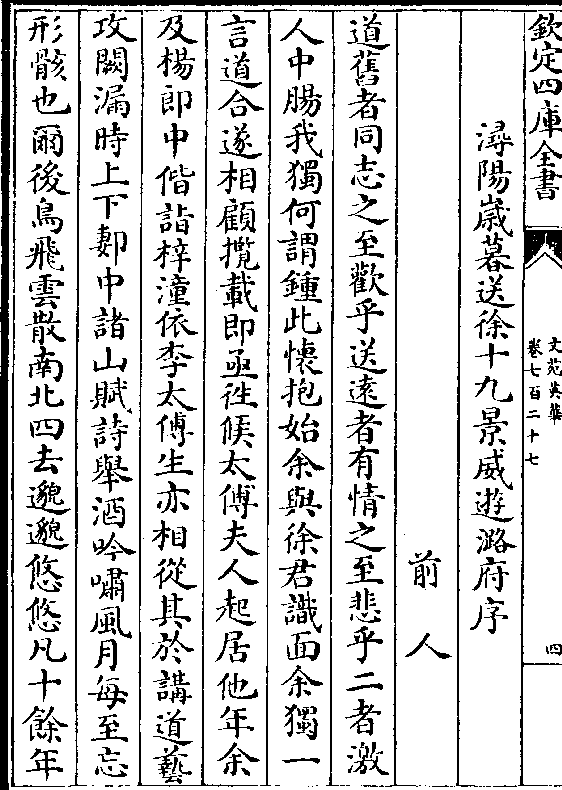 欽定四庫全書
文苑英華
卷七百二十七
四
潯陽歲暮送徐十九景威遊潞府序
前人
道舊者同志之至歡乎送遠者有情之至悲乎二者激
人中腸我獨何謂鍾此懷抱始余與徐君識面余獨一
言道合遂相顧攬載即亟徃候太傅夫人起居他年余
及楊郎中偕詣梓潼依李太傅生亦相從其於講道藝
攻闕漏時上下郪中諸山賦詩舉酒吟嘯風月每至忘
形骸也爾後鳥飛雲散南北四去邈邈悠悠凡十餘年